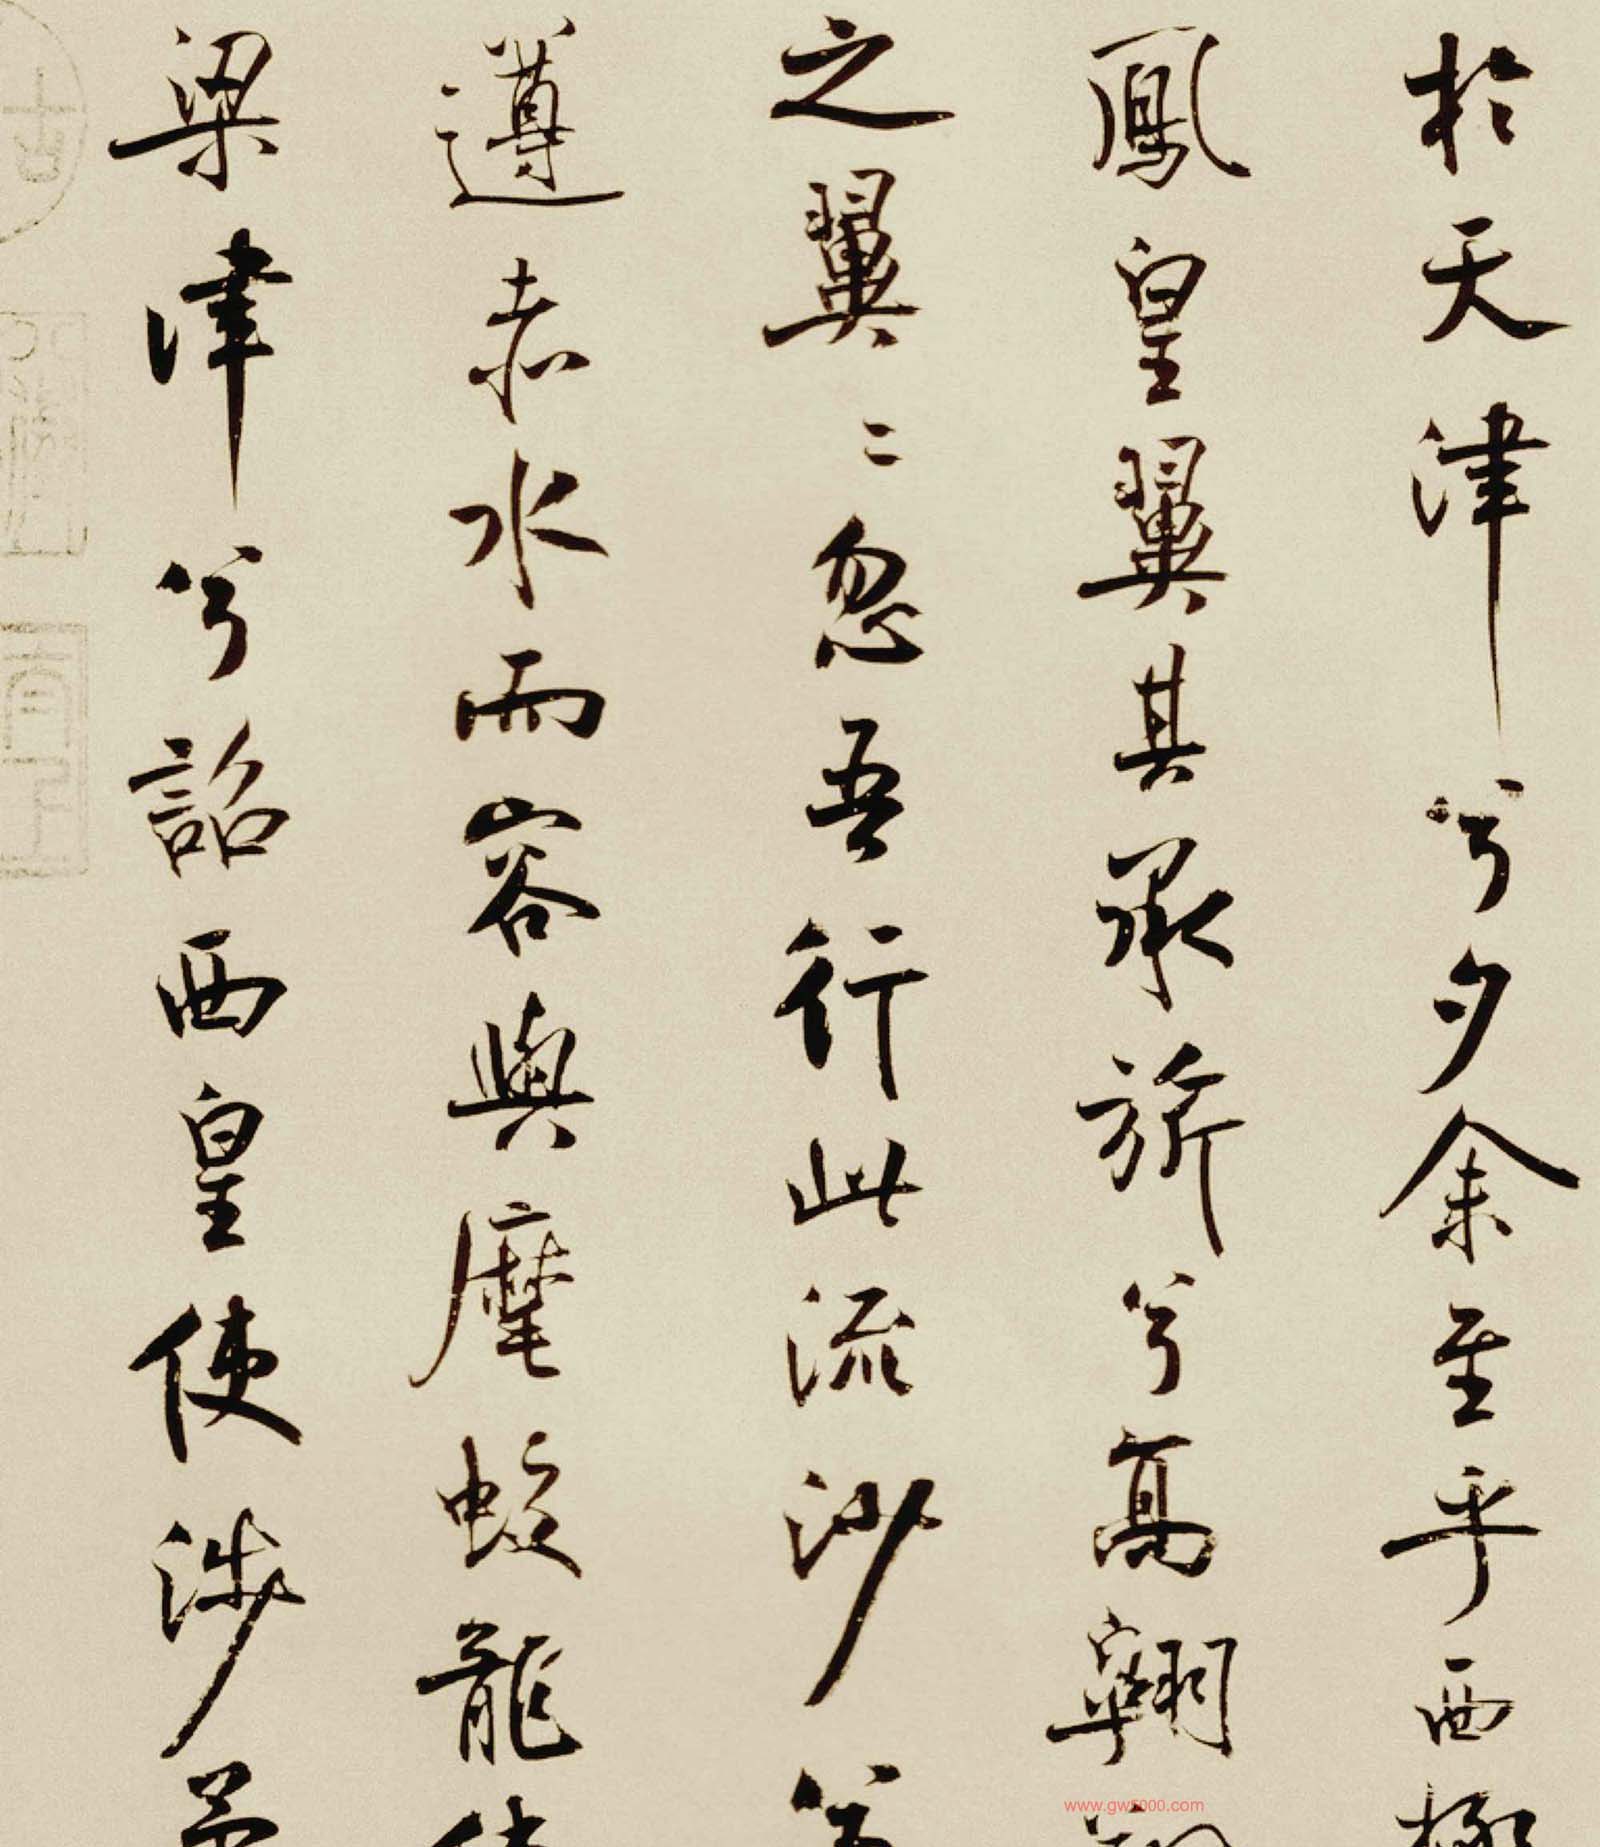 於天津兮夕余至乎西極
鳳皇翼其承旂兮高翱翔
之翼〻忽吾行此流沙兮
遵赤水而容與麾蛟龍使
梁津兮詔西皇使涉予
www.gw5000.com